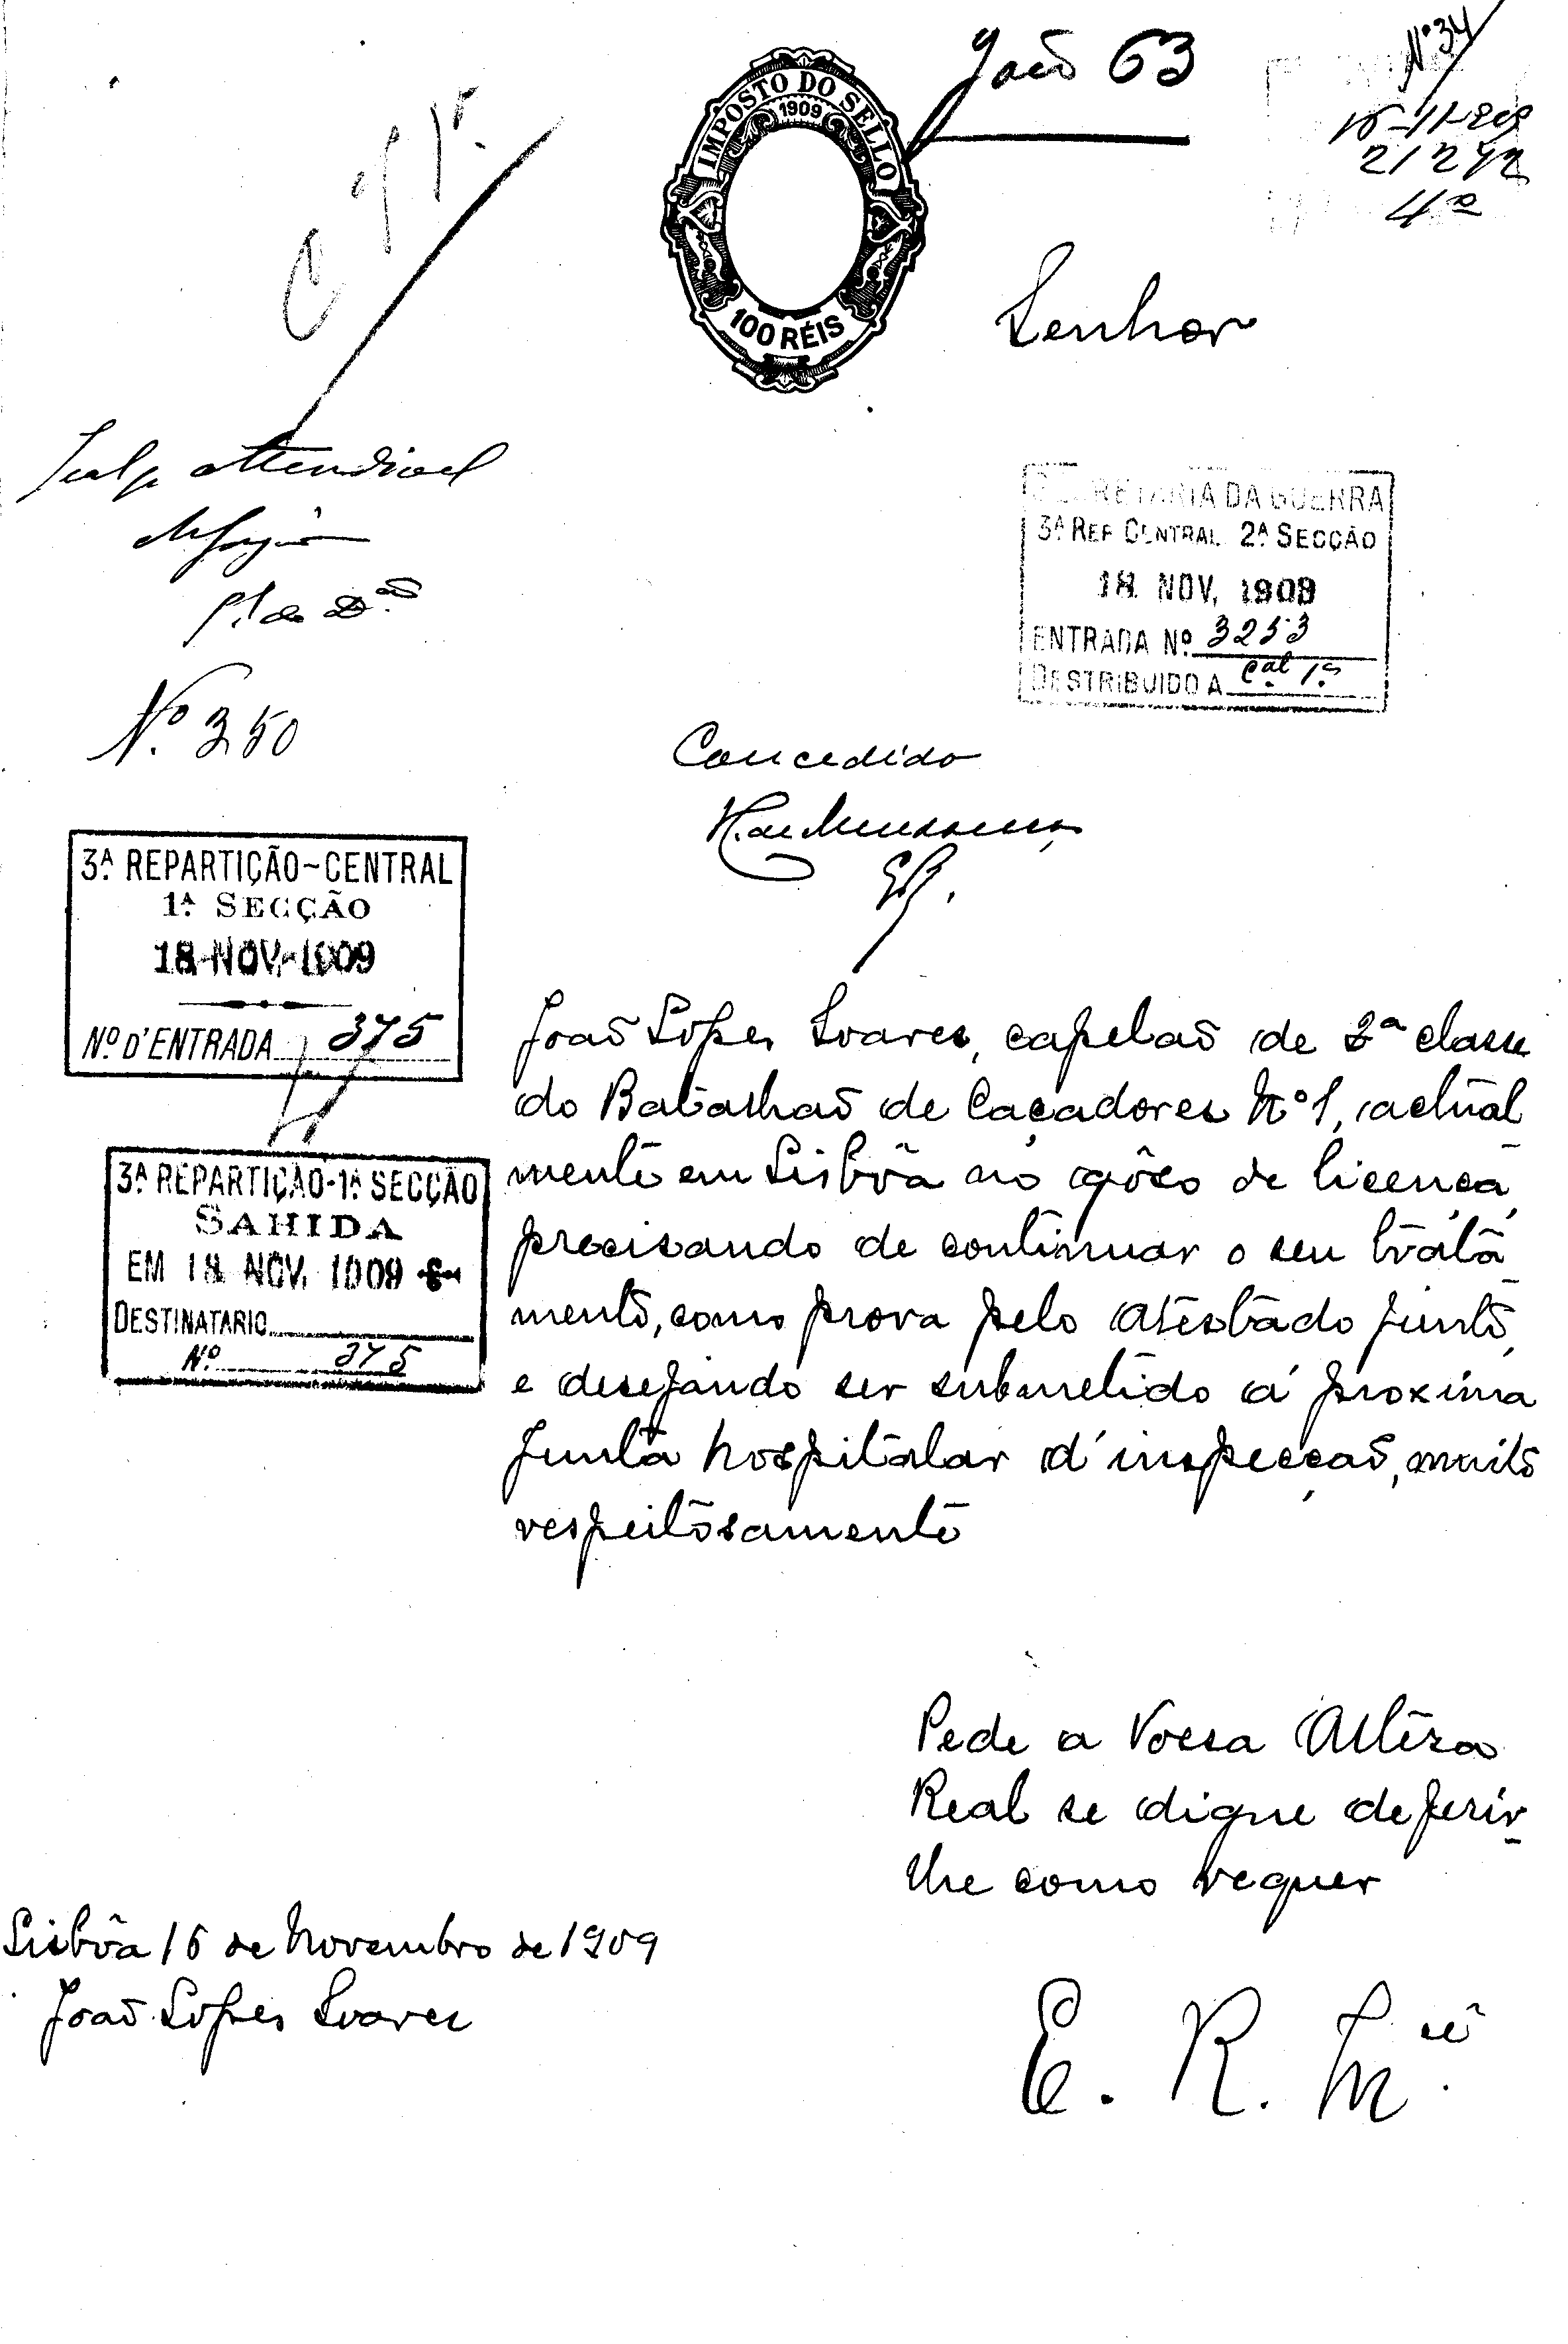 João 63
Nº 34
IMPOSTO DO SELLO
1909
100 RÉIS
21272
4ª
Senhor
attendivel
SECRETARIA DA GUERRA
3ª REP CENTRAL 2ª SECÇÃO
18 NOV, 1909
ENTRADA Nº 3253
DESTRIBUIDO A Cal 1º
Nº. 350
Concedido
3ª REPARTIÇÃO-CENTRAL
1ª SECÇÃO
18 NOV. 1909
Nº D'ENTRADA 375
3ª REPARTIÇÃO-1ª SECÇÃO
SAHIDA
EM 18 NOV. 1909
DESTINATARIO
Nº 375
João Lopes Soares, capelão de 2ª classe
do Batalhão de Caçadores Nº 1, actual
mente em Lisbôa no gôso de licença,
precisando de continuar o seu trata
mento, como prova pelo atestado junto,
e desejando ser submetido á proxima
junta hospitalar d'inspecção, muito
respeitosamente
Pede a Vossa Alteza
Real se digne deferir-
lhe como requer
Lisbôa 16 de Novembro de 1909
João Lopes Soares
E. R. M.cê